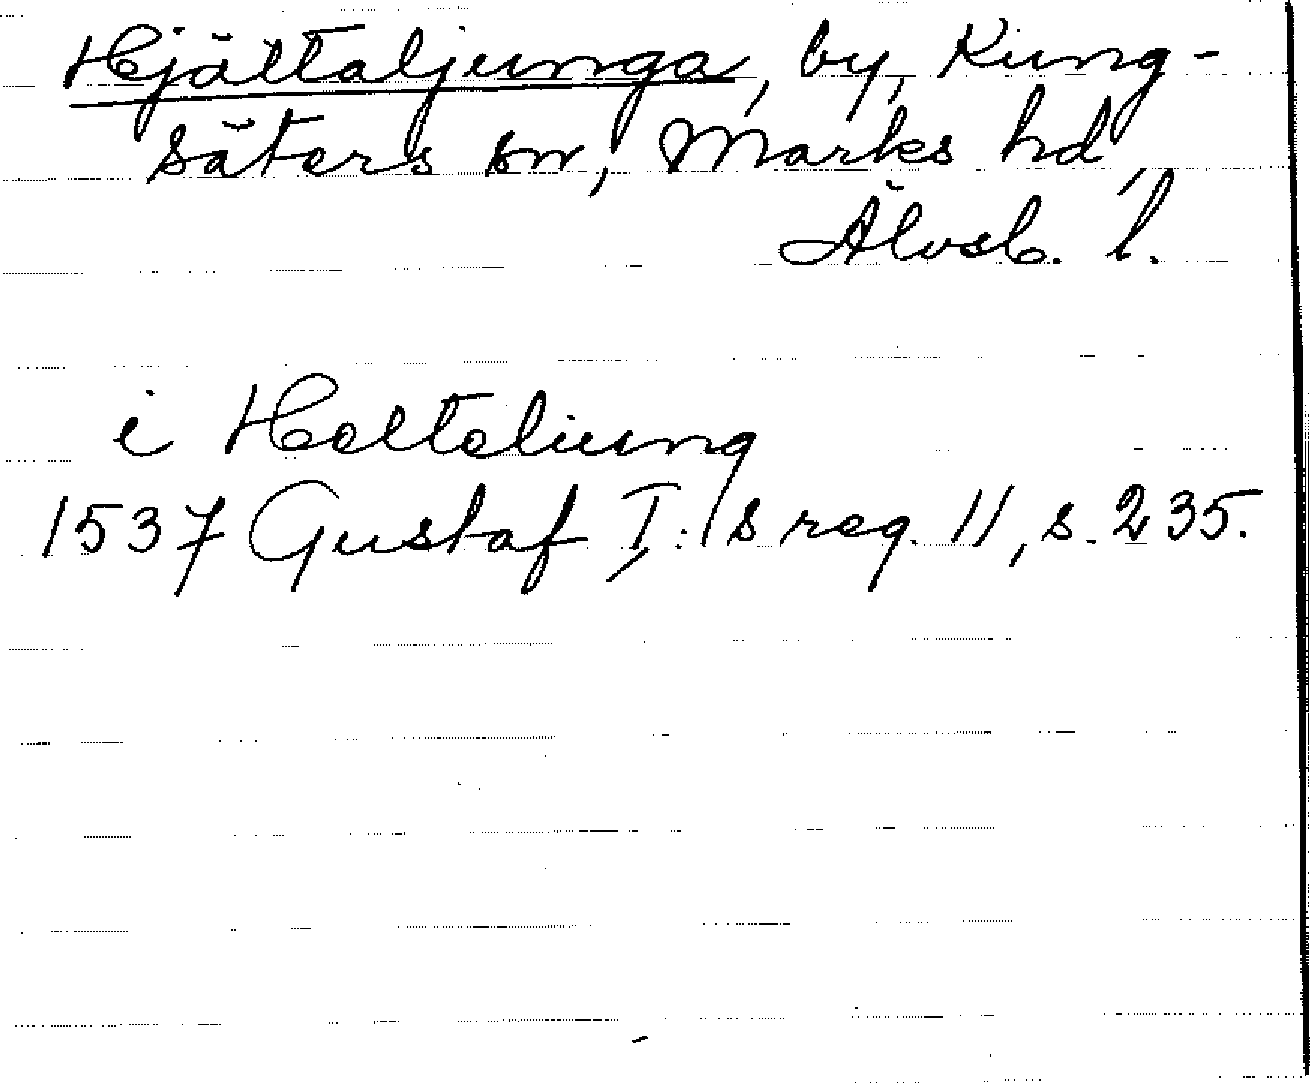 Hjältaljunga, by, Kung-
säters sn, Marks hd,
Älvsb. l.
i Helteliung
1537 Gustaf I:s reg. 11, s. 235.